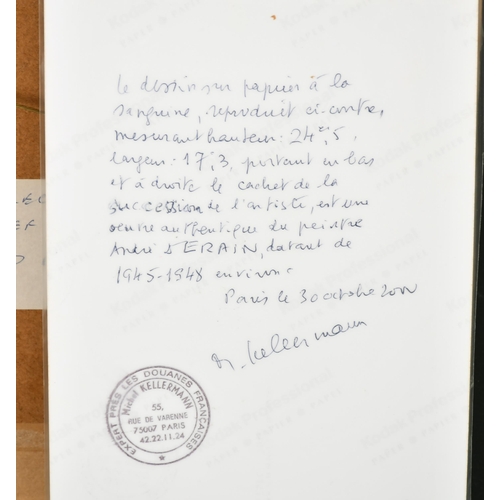 Le dessin sur papier à la
sanguine, reproduit ci-contre,
mesurant hauteur: 24,5,
largeur: 17,3, portant en bas
et à droite le cachet de la
succession de l'artiste, est une
oeuvre authentique du peintre
André DERAIN, datant de
1945-1948 environ.
Paris le 30 octobre 2000
M. Kellermann
EXPERT PRÈS LES DOUANES FRANÇAISES
Michel KELLERMANN
55,
RUE DE VARENNE
75007 PARIS
42.22.11.24